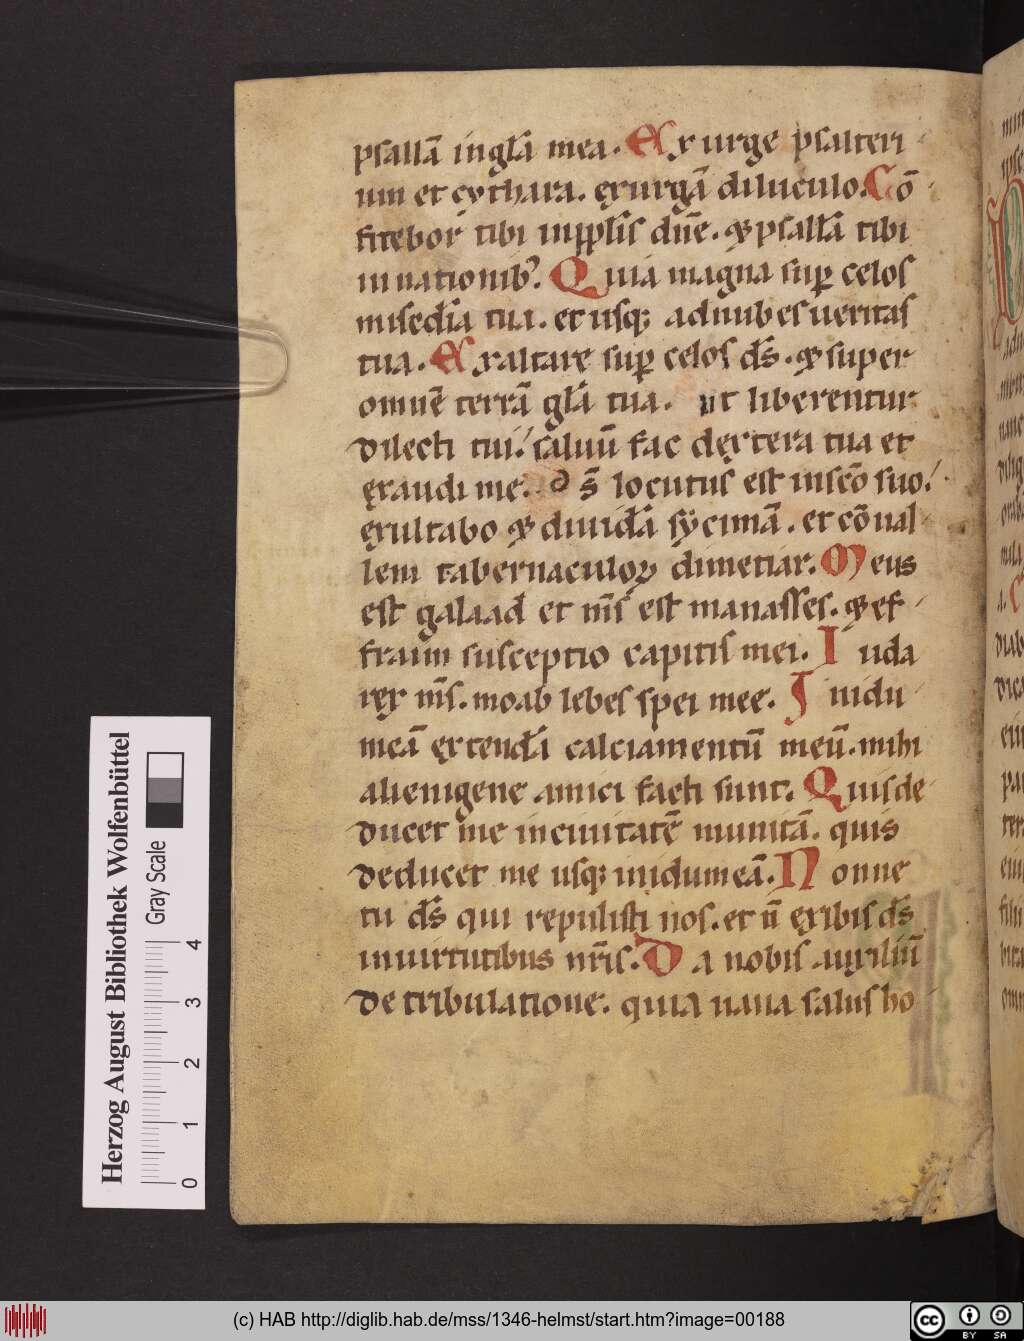 psallā in gl̄a mea. Exurge psalteri
um et cythara. exurgā diluculo. Cō
fitebor tibi in pplīs dn̄e. & psallā tibi
in nationib;. Quia magna sup celos
misedīa tua. et usq; ad nubes ueritas
tua. Exaltare sup celos ds̄. & super
omnē terrā gl̄a tua. ut liberentur
dilecti tui. saluū fac dextera tua et
exaudi me. ds̄ locutus est in scō suo.
exultabo & diuidā sycimā. et cōual
lem tabernaculoꝝ dimetiar. Meus
est galaad et ms̄ est manasses. & ef
fraim susceptio capitis mei. Iuda
rex ms̄. moab lebes spei mee. In idu
meā extendā calciamentū meū. mihi
alienigene amici facti sunt. Quis de
ducet me in ciuitatē munitā. quis
deducet me usq; in idumeā. Nonne
tu ds̄ qui repulisti nos. et n̄ exibis ds̄
in uirtutibus nr̄is. Da nobis auxiliū
de tribulatione. quia uana salus ho
Herzog August Bibliothek Wolfenbüttel
Gray Scale
0 1 2 3 4
(c) HAB http://diglib.hab.de/mss/1346-helmst/start.htm?image=00188
cc BY SA